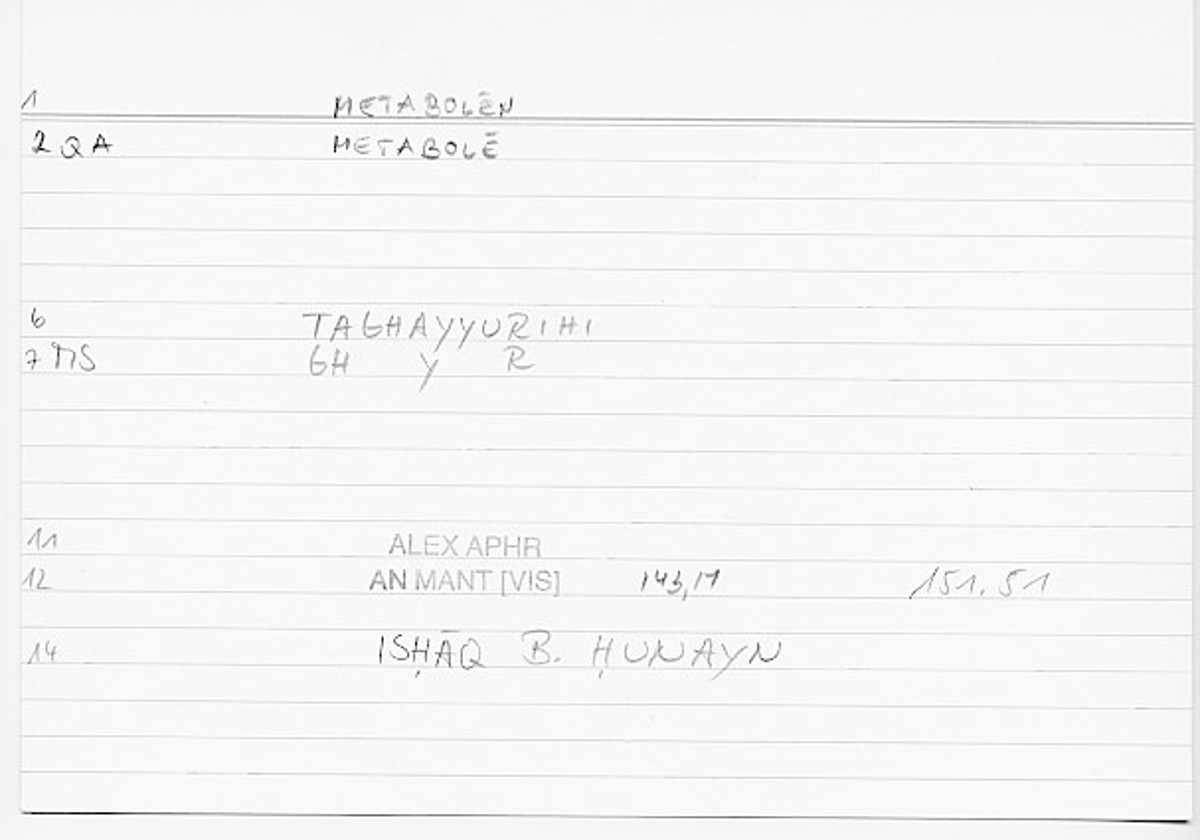 1 METABOLĒN
2 QA METABOLĒ
6 TAGHAYYURIHI
7 MS GH Y R
11 ALEX APHR
12 AN MANT [VIS] 143,17 151.51
14 ISḤĀQ B. ḤUNAYN